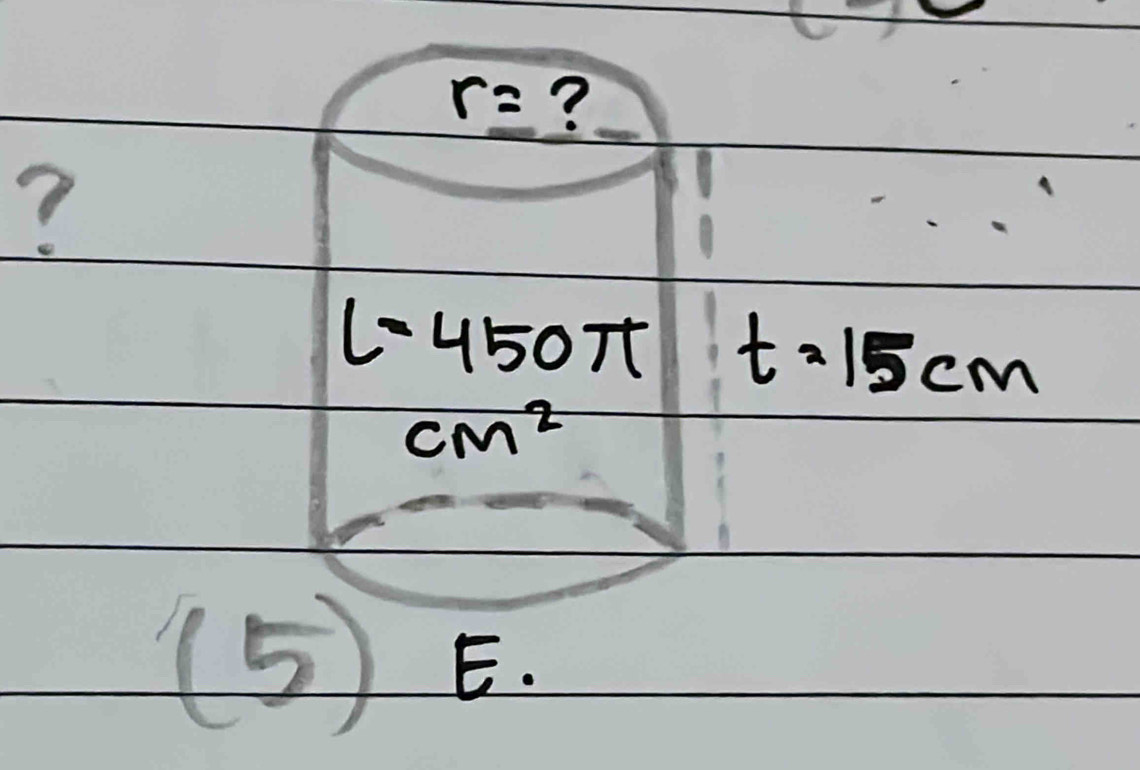 r = ?
?
L = 450 π
cm²
t = 15 cm
(5) E.